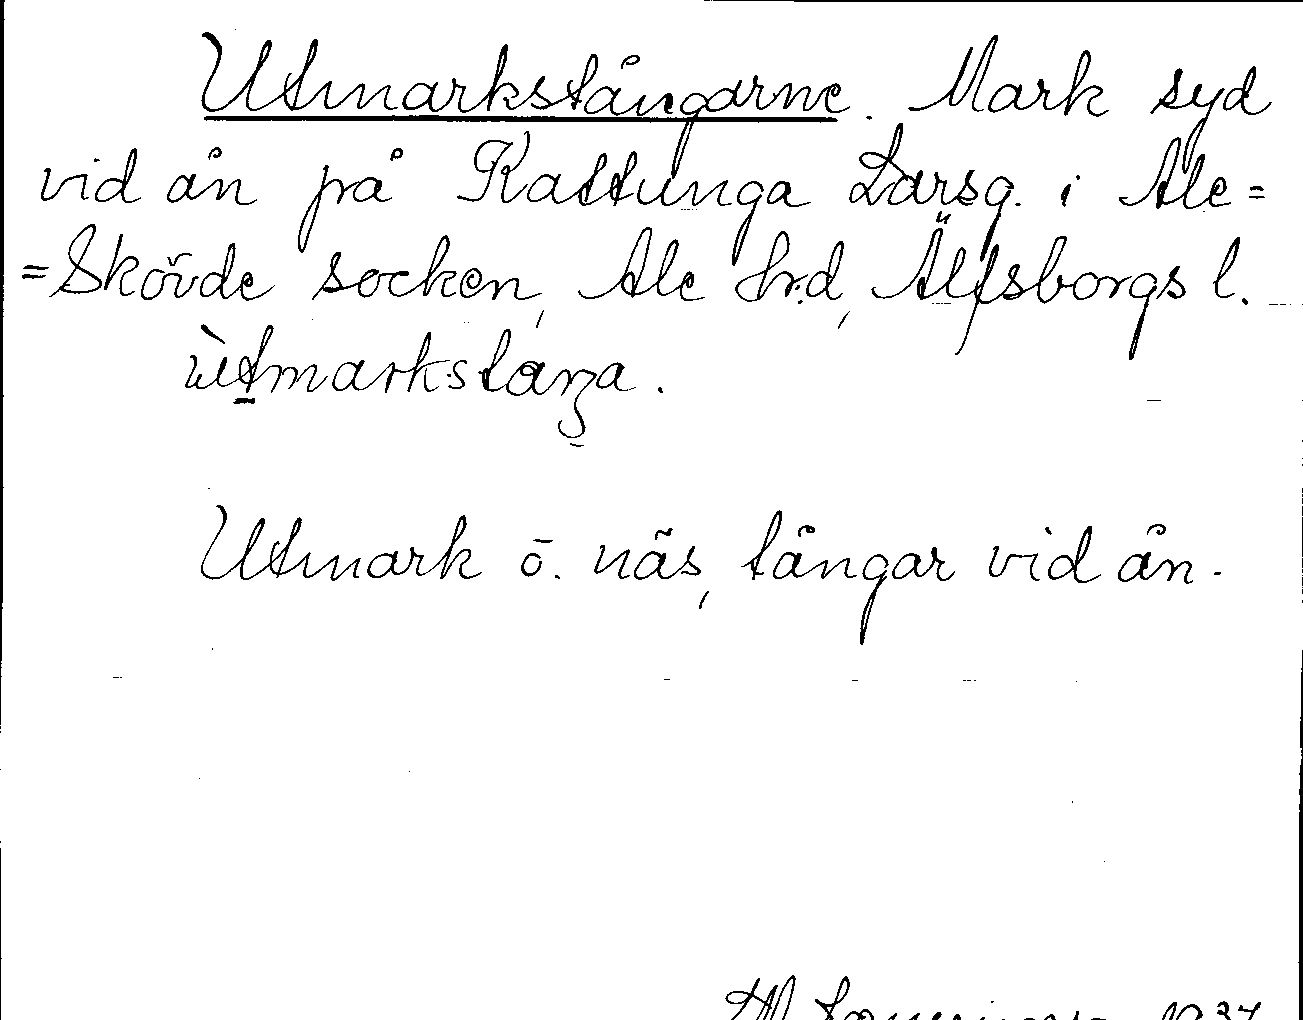 Utmarkstångarne. Mark syd
vid ån på Kattunga Larsg. i Ale=
=Skövde socken, Ale hrd, Älfsborgs l.
ùtmarkstaŋa.
Utmark o. näs, tångar vid ån.
1937